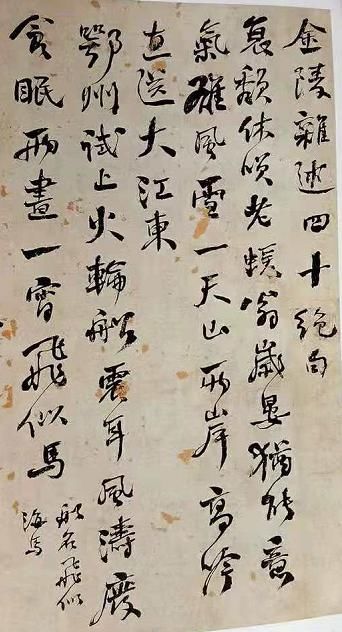 金陵雜述四十絕句
衰顏休咲老蝯翁歲晏猶能意
氣雄風雪一天山兩岸高吟
直送大江東
鄂州試上火輪船震耳風濤廢
食眠兩晝一宵飛似馬
船名飛似
海馬